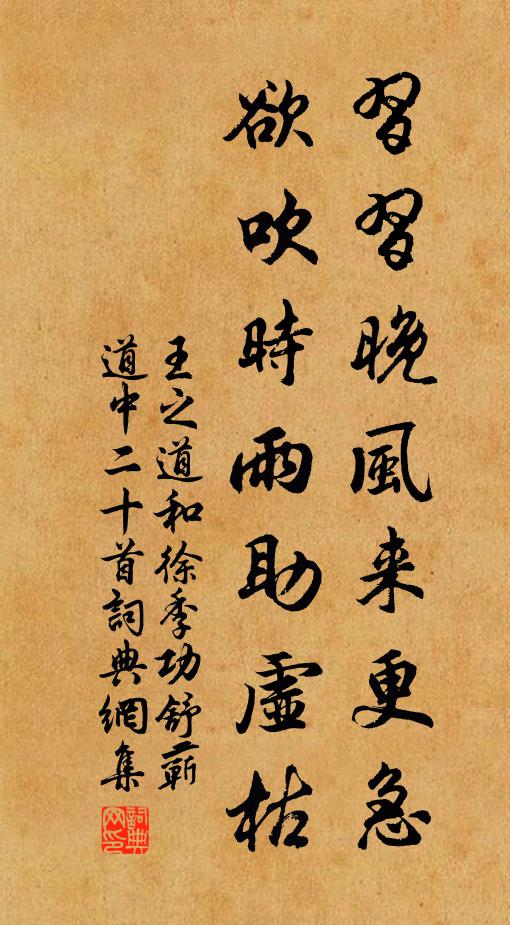 習習晚風来更急
欲吹時雨助虛枯
王之道和徐季功舒蘄
道中二十首詞典網集
詞典网印